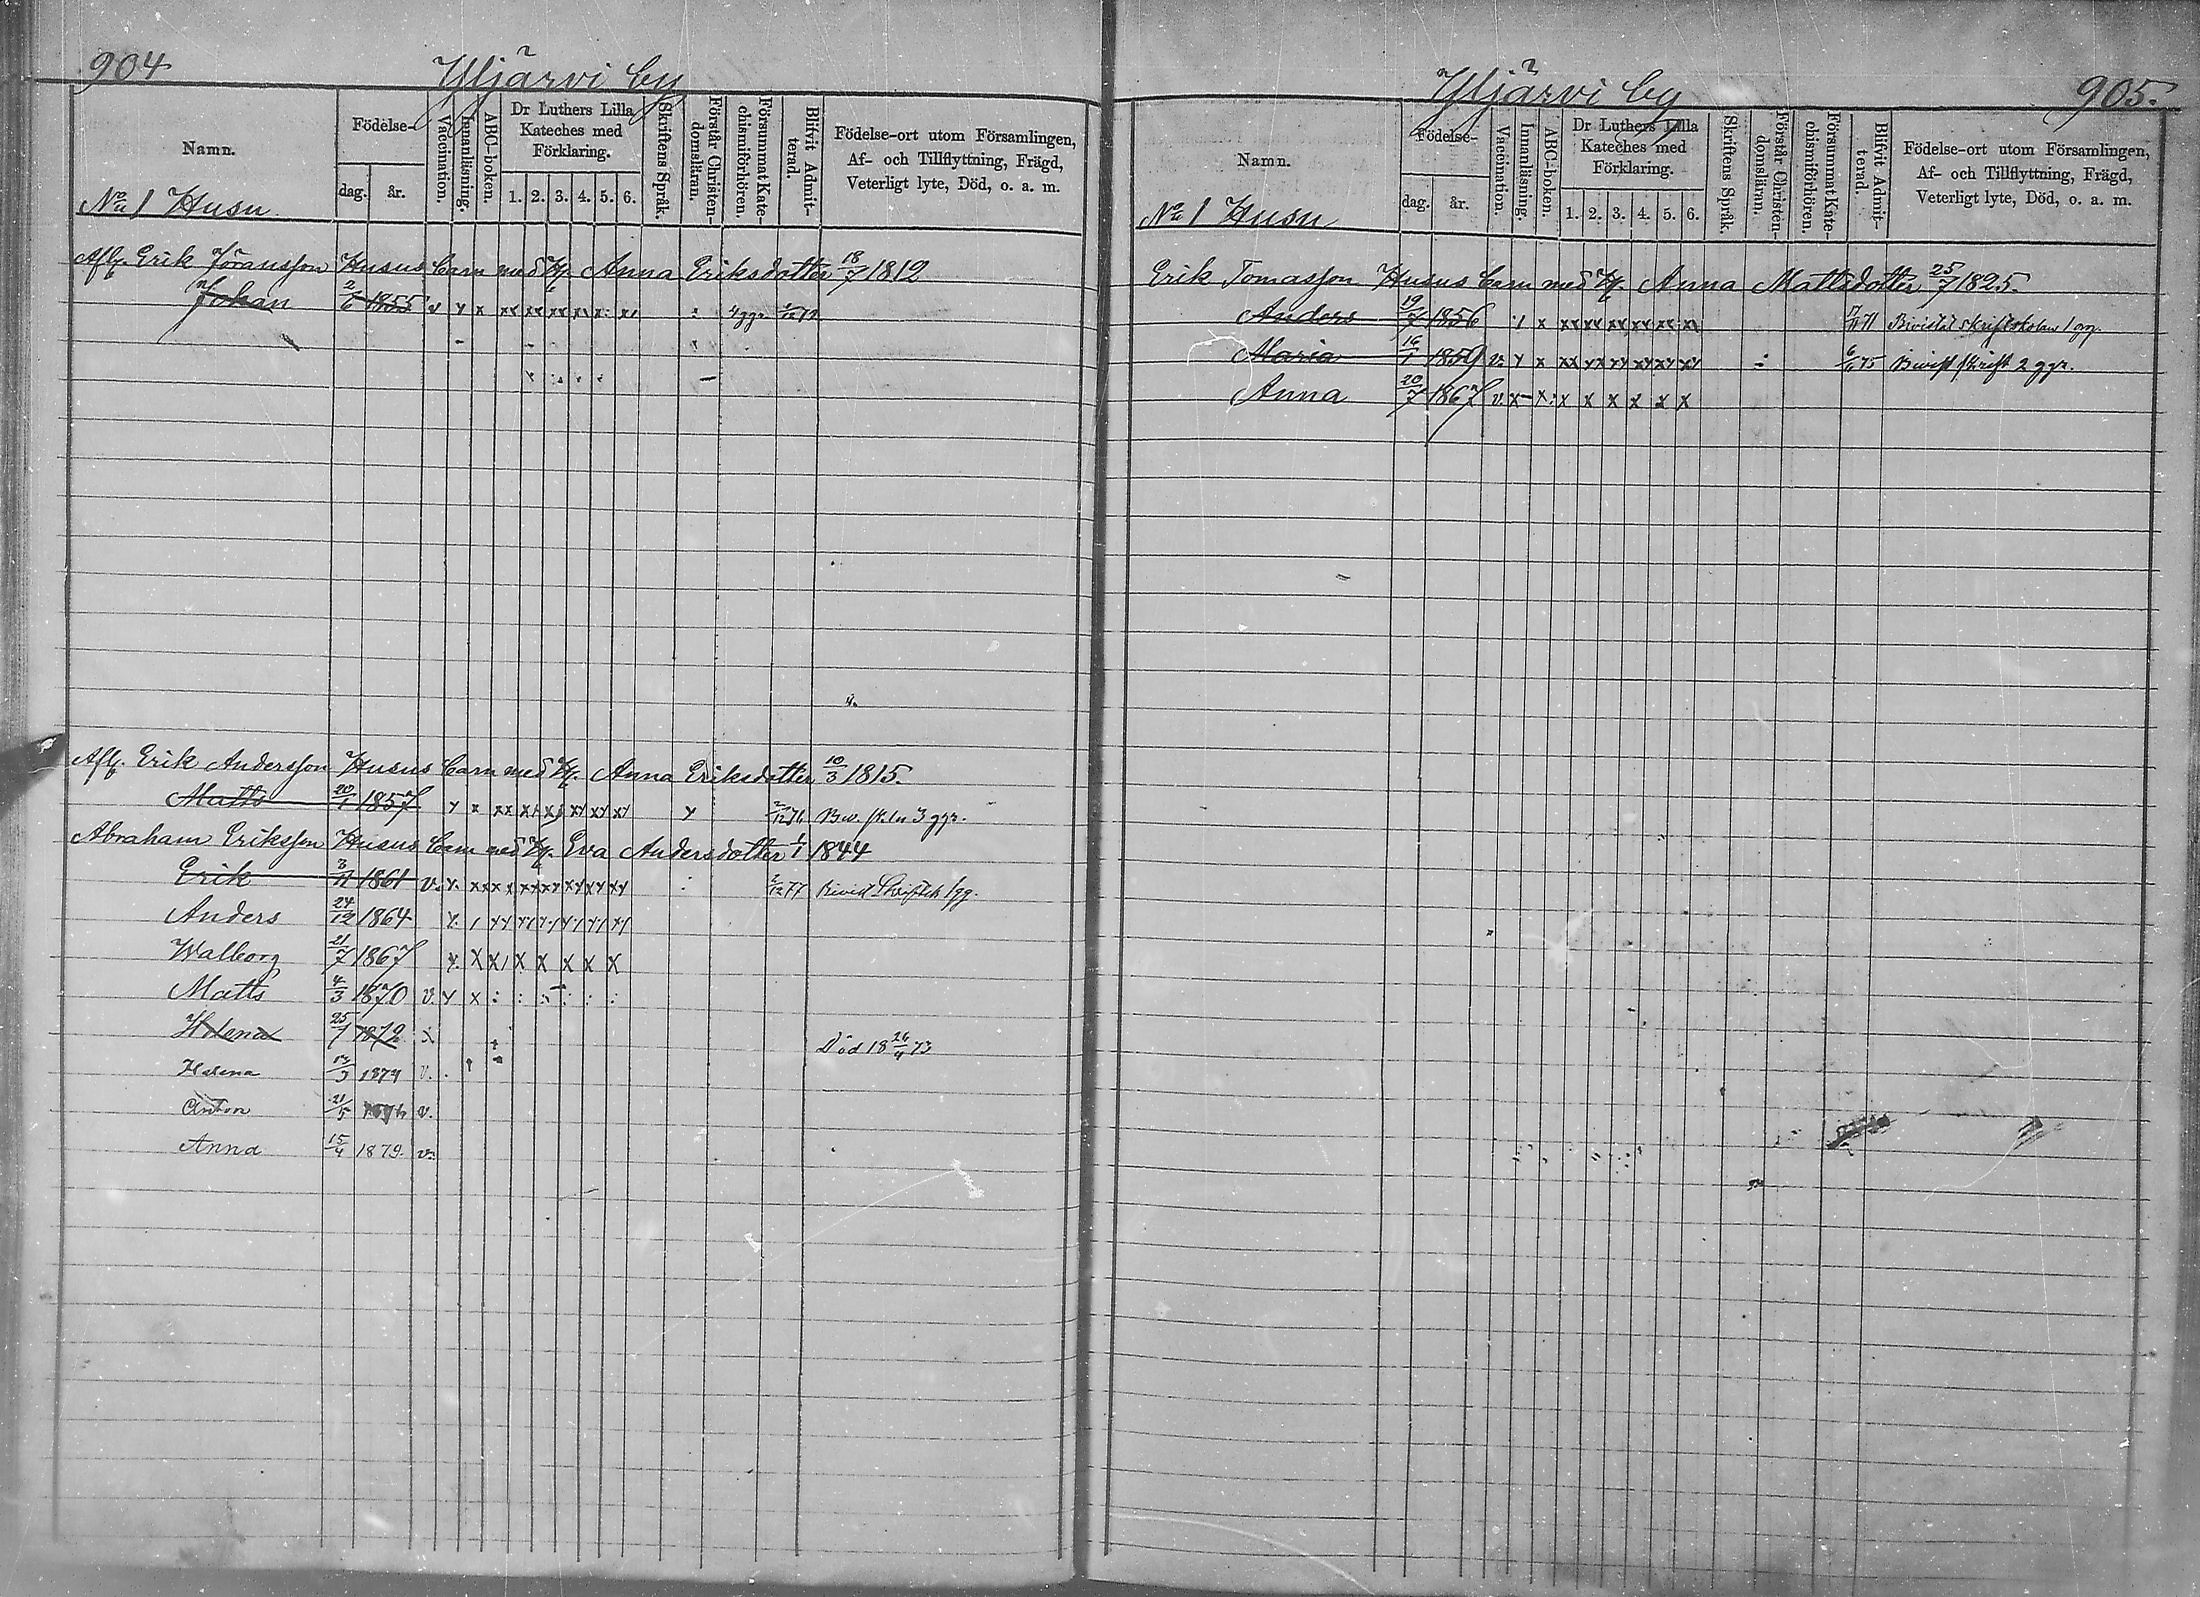 904
Yljärvi by
Namn.
Födelse-
dag.
år.
Vaccination.
Innanläsning.
ABC-boken.
Dr Luthers Lilla
Kateches med
Förklaring.
1. 2. 3. 4. 5. 6.
Skriftens Språk.
Förstår Christen-
domsläran.
Försummat Kate-
chismiförhören.
Blifvit Admit-
terad.
Födelse-ort utom Församlingen,
Af- och Tillflyttning, Frägd,
Veterligt lyte, Död, o. a. m.
No 1 Husu
Afl. Erik Jöransson Husus barn med H. Anna Eriksdotter 18/7 1812
Johan 2/6 1855 v y x xx xx xx xx x: x1 : 4 ggr
Afl. Erik Andersson Husus barn med H. Anna Eriksdotter 10/3 1815.
Matts 20/1 1857 y x xx xx xx xy xy xy y 2/12 76 3 ggr.
Abraham Eriksson Husus barn med H. Eva Andersdotter 1/1 1844
Erik 3/11 1861 v. y. 2/12 77 Bivist Skriftsk 1 gg.
Anders 24/12 1864
Walborg 21/7 1867 y. X X X X X X X
Matts 4/3 1870 v. y x : : : : : :
Helena 25/7 1872 x Död 18 26/4 73
Helena 13/3 1874 v.
Anton 21/5 v.
Anna 15/4 1879. v.
Yljärvi by
905.
Namn.
Födelse-
dag.
år.
Vaccination.
Innanläsning.
ABC-boken.
Dr Luthers Lilla
Kateches med
Förklaring.
1. 2. 3. 4. 5. 6.
Skriftens Språk.
Förstår Christen-
domsläran.
Försummat Kate-
chismiförhören.
Blifvit Admit-
terad.
Födelse-ort utom Församlingen,
Af- och Tillflyttning, Frägd,
Veterligt lyte, Död, o. a. m.
No 1 Husu
Erik Tomasson Husus barn med H. Anna Mattsdotter 25/7 1825.
Anders 19/7 1856 x xx xx xx xx xx 17/11 71 Bivistat skriftskolan 1 gg.
Maria 16/1 1859 v. y x xx yx xy xy xy xy ÷ 6/11 75 Bivist skrift 2 ggr.
Anna 20/7 1867 v. x x x x x x x x